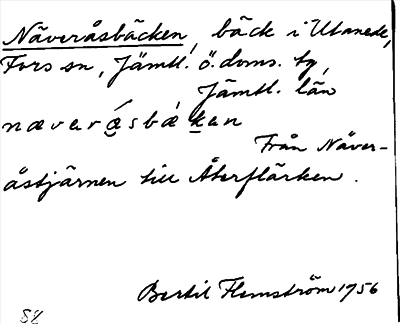 Näveråsbäcken, bäck i Utanede,
Fors sn, Jämtl. ö. doms. tg,
Jämtl. län
nævarásbákan
Från Näver-
åstjärnen till Återflärken.
Bertil Flemström 1956